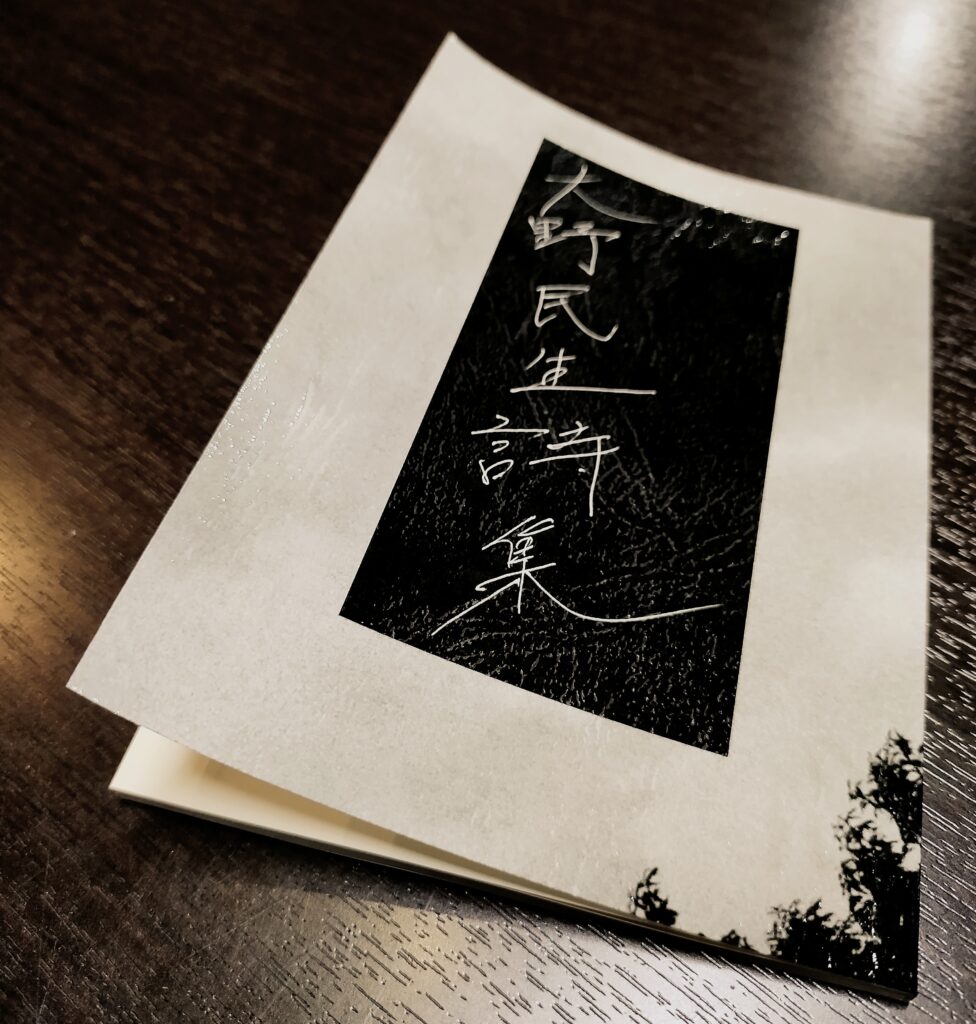 大野民生詩集